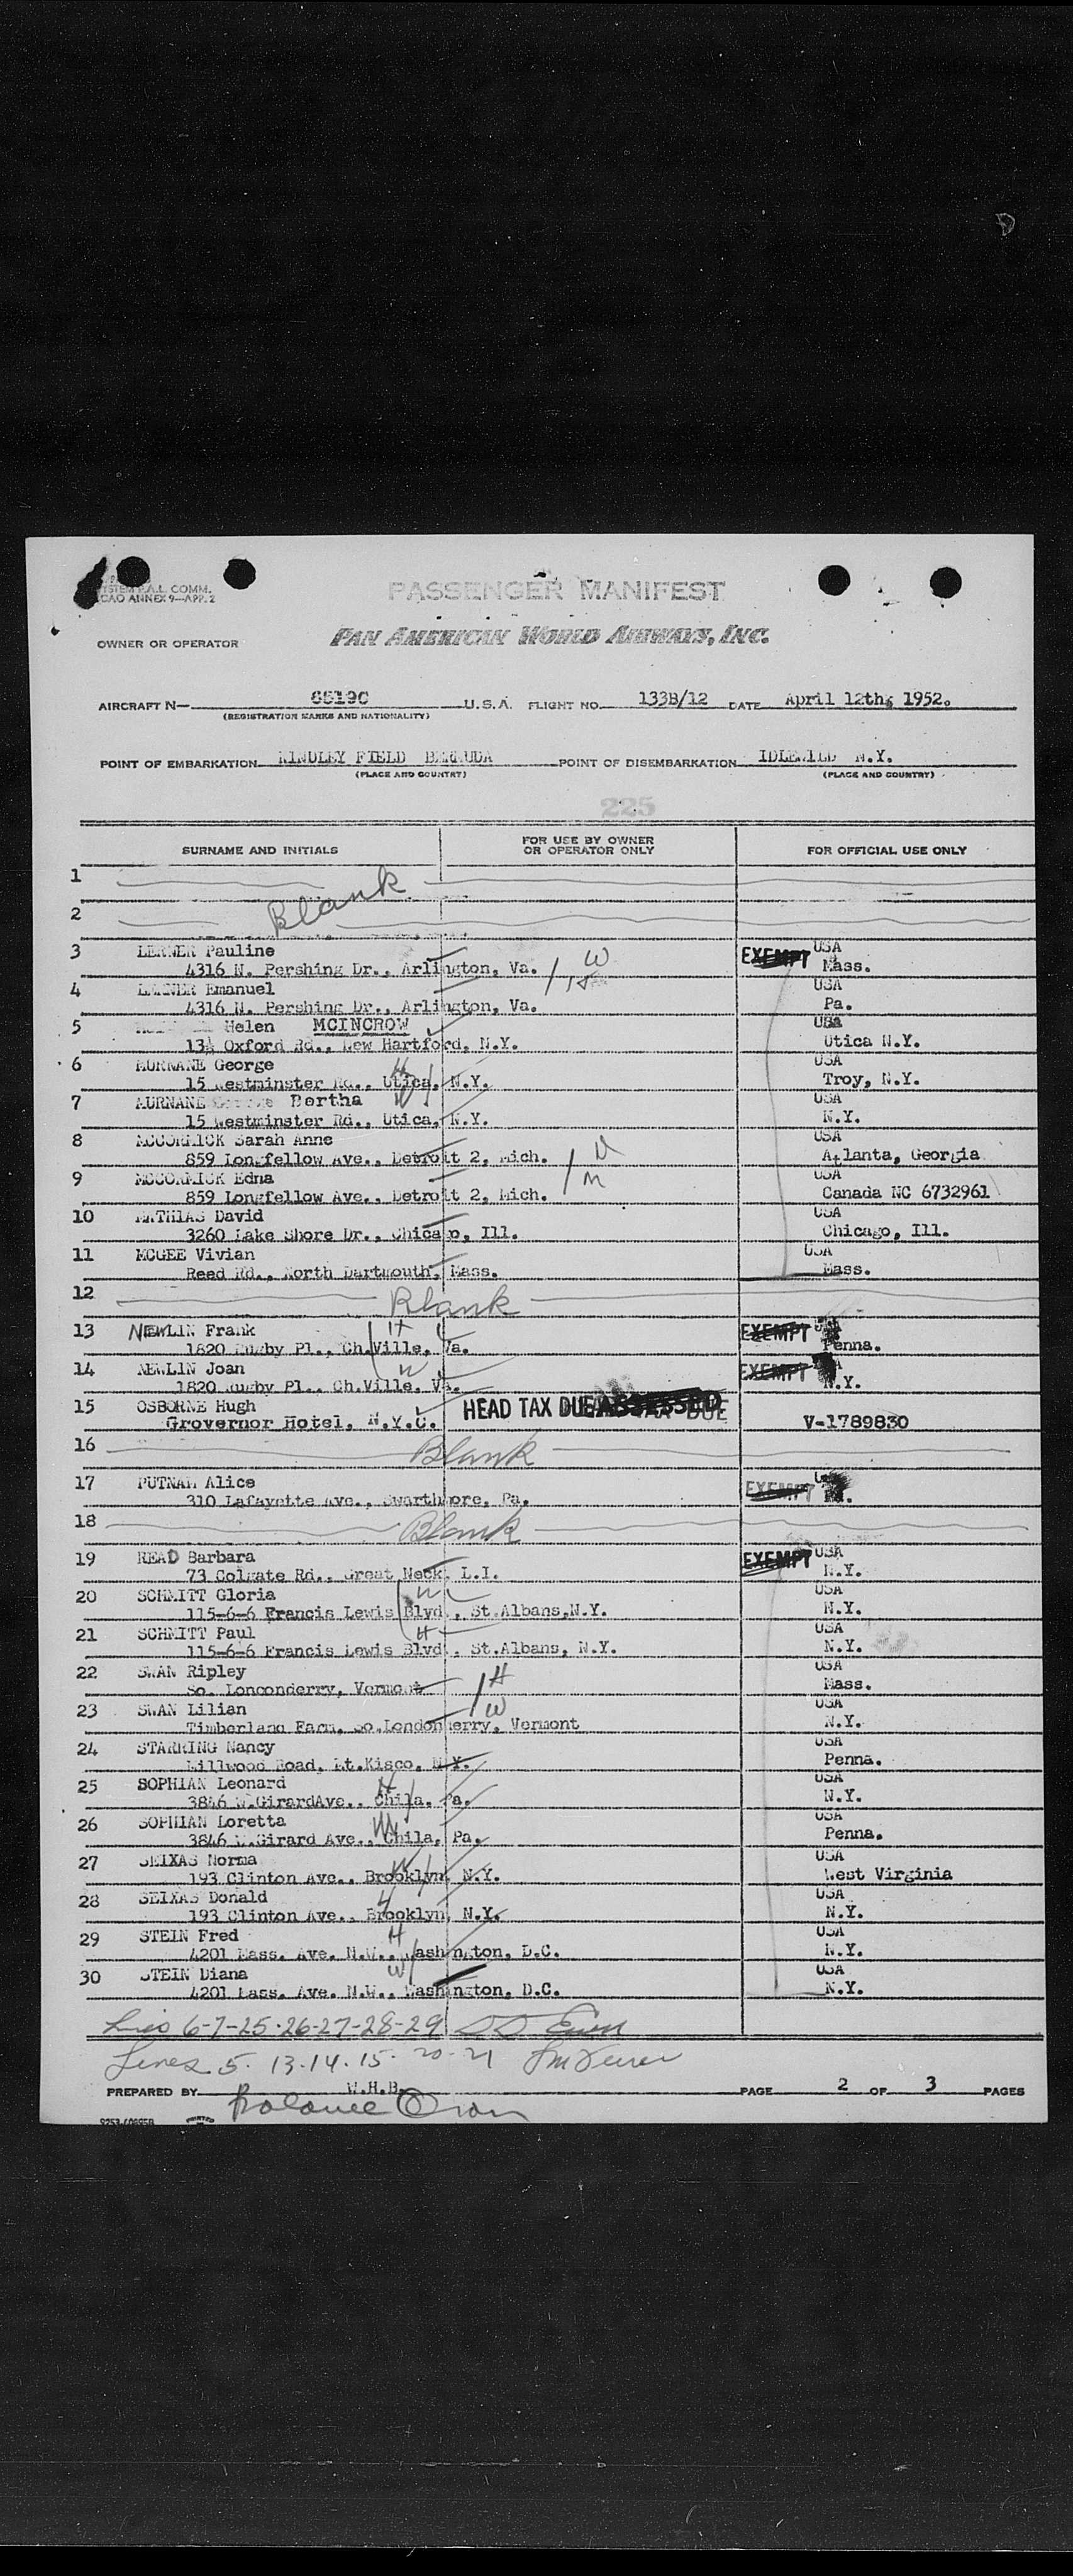 SYSTEM P.A.L. COMM.
ICAO ANNEX 9—APP. 2
PASSENGER MANIFEST
OWNER OR OPERATOR PAN AMERICAN WORLD AIRWAYS, INC.
AIRCRAFT N— 88190 U.S.A. FLIGHT NO. 133B/12 DATE April 12th, 1952.
(REGISTRATION MARKS AND NATIONALITY)
POINT OF EMBARKATION KINDLEY FIELD BERMUDA POINT OF DISEMBARKATION IDLEWILD N.Y.
(PLACE AND COUNTRY) (PLACE AND COUNTRY)
225
SURNAME AND INITIALS FOR USE BY OWNER OR OPERATOR ONLY FOR OFFICIAL USE ONLY
1
Blank
2
3 LERNER Pauline EXEMPT USA
4316 N. Pershing Dr., Arlington, Va. / W Mass.
4 LERNER Emanuel H USA
4316 N. Pershing Dr., Arlington, Va. Pa.
5 Helen MCINCROW USA
13½ Oxford Rd., New Hartford, N.Y. Utica N.Y.
6 MURNANE George H USA
15 Westminster Rd., Utica, N.Y. Troy, N.Y.
7 MURNANE Bertha W USA
15 Westminster Rd., Utica, N.Y. N.Y.
8 MCCORMICK Sarah Anne USA
859 Longfellow Ave., Detroit 2, Mich. Atlanta, Georgia
9 MCCORMICK Edna / M USA
859 Longfellow Ave., Detroit 2, Mich. Canada NC 6732961
10 MATHIAS David USA
3260 Lake Shore Dr., Chicago, Ill. Chicago, Ill.
11 MCGEE Vivian USA
Reed Rd., North Dartmouth, Mass. Mass.
12 Blank
13 NEWLIN Frank H EXEMPT
1820 Rugby Pl., Ch.Ville, Va. Penna.
14 NEWLIN Joan W EXEMPT
1820 Rugby Pl., Ch.Ville, Va. N.Y.
15 OSBORNE Hugh HEAD TAX DUE ASSESSED
Grovernor Hotel, N.Y.C. V-1789830
16 Blank
17 PUTNAM Alice EXEMPT
310 Lafayette Ave., Swarthmore, Pa.
18 Blank
19 READ Barbara EXEMPT USA
73 Colgate Rd., Great Neck, L.I. N.Y.
20 SCHMITT Gloria W USA
115-6-6 Francis Lewis Blvd., St.Albans,N.Y. N.Y.
21 SCHMITT Paul H USA
115-6-6 Francis Lewis Blvd., St.Albans, N.Y. N.Y.
22 SWAN Ripley H USA
So. Lononderry, Vermont Mass.
23 SWAN Lilian W USA
Timberland Farm, So.Londonderry, Vermont N.Y.
24 STARRING Nancy USA
Millwood Road, Mt.Kisco, N.Y. Penna.
25 SOPHIAN Leonard H USA
3846 W.GirardAve., Chila, Pa. N.Y.
26 SOPHIAN Loretta W USA
3846 W.Girard Ave., Chila, Pa. Penna.
27 SEIXAS Norma W USA
193 Clinton Ave., Brooklyn, N.Y. West Virginia
28 SEIXAS Donald H USA
193 Clinton Ave., Brooklyn, N.Y. N.Y.
29 STEIN Fred H USA
4201 Mass. Ave. N.W., Washington, D.C. N.Y.
30 STEIN Diana W USA
4201 Mass. Ave. N.W., Washington, D.C. N.Y.
6-7-25-26-27-28-29
Lines 5. 13.14.15. 20-21
PREPARED BY W.H.B. PAGE 2 OF 3 PAGES
Balance